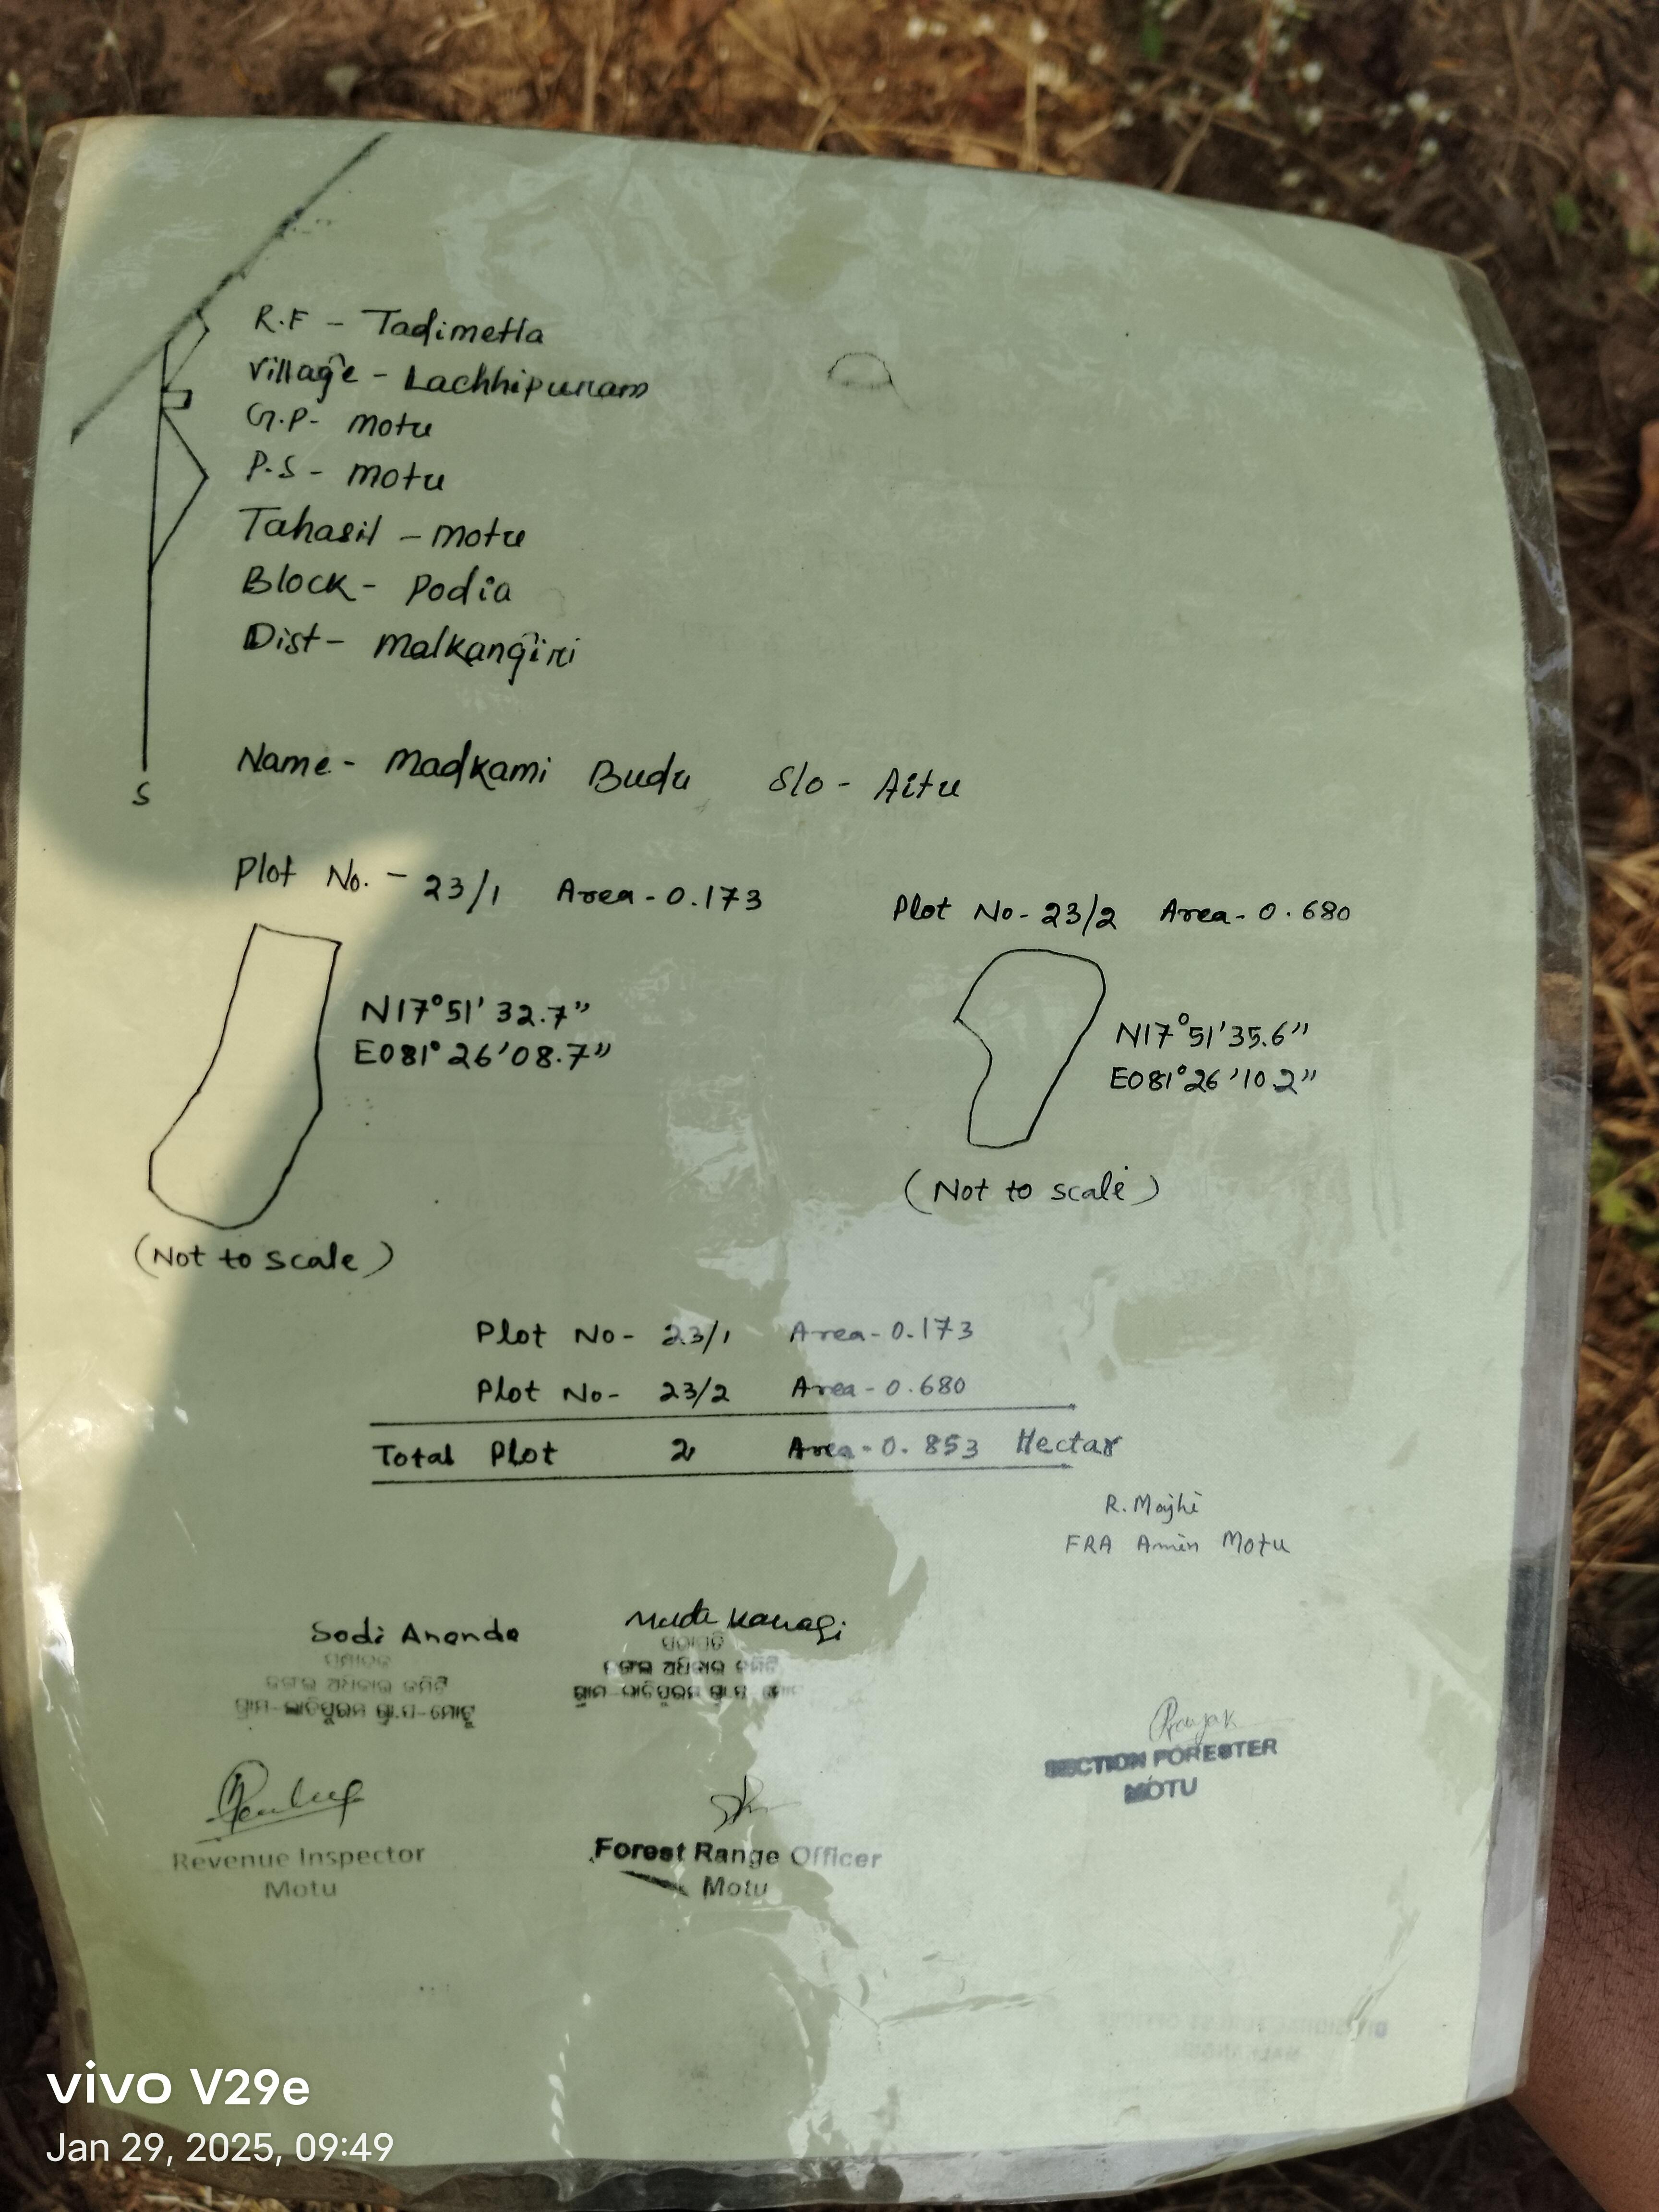 R.F - Tadimetla
Village - Lachhipuram
G.P- Motu
P.S - Motu
Tahasil - Motu
Block - Podia
Dist - Malkangiri
S
Name - Madkami Budu S/o - Aitu
Plot No. - 23/1 Area - 0.173
Plot No - 23/2 Area - 0.680
N17°51' 32.7"
E081° 26' 08.7"
N17°51'35.6"
E081°26'10.2"
(Not to scale)
(Not to scale)
Plot No - 23/1 Area - 0.173
Plot No - 23/2 Area - 0.680
Total Plot 2 Area - 0.853 Hectar
R. Majhi
FRA Amin Motu
Sodi Ananda
ସଭାପତି
ଜଙ୍ଗଲ ଅଧିକାର କମିଟି
SECTION FORESTER
MOTU
Revenue Inspector
Motu
Forest Range Officer
Motu
vivo V29e
Jan 29, 2025, 09:49